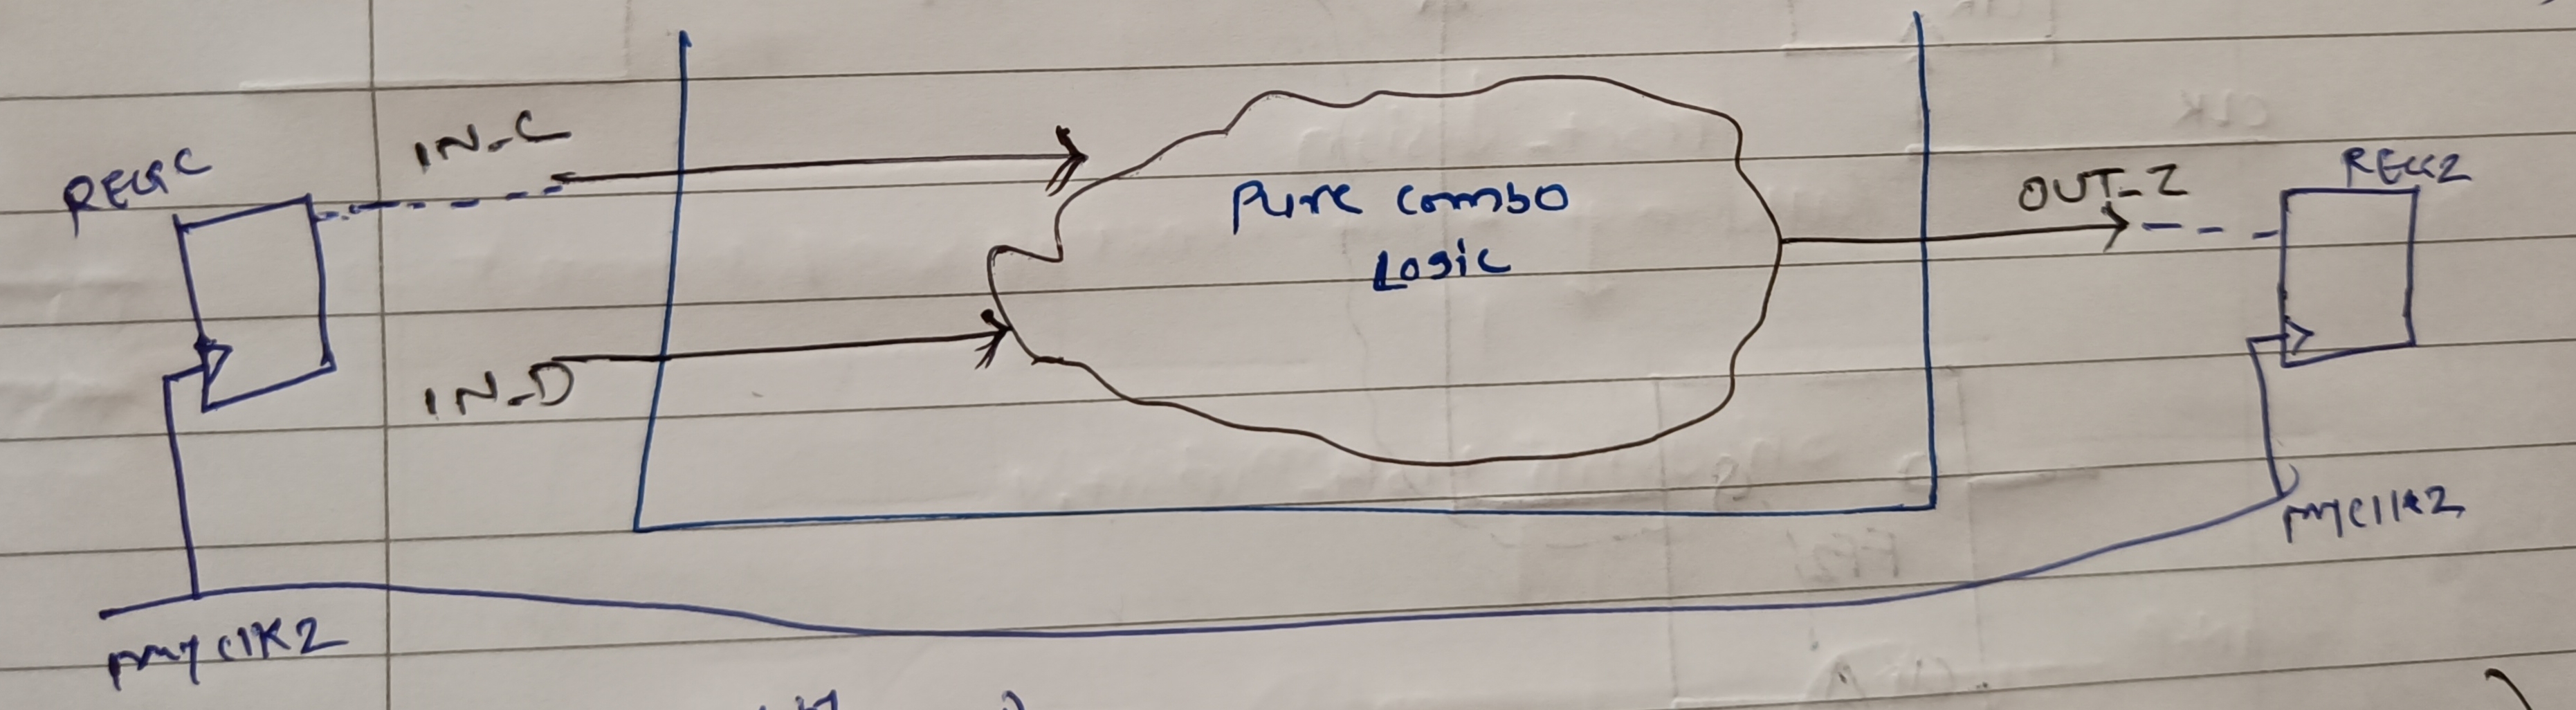 REGC
IN_C
Pure combo
Logic
OUT_Z
REGZ
IN_D
myclk2
myclk2